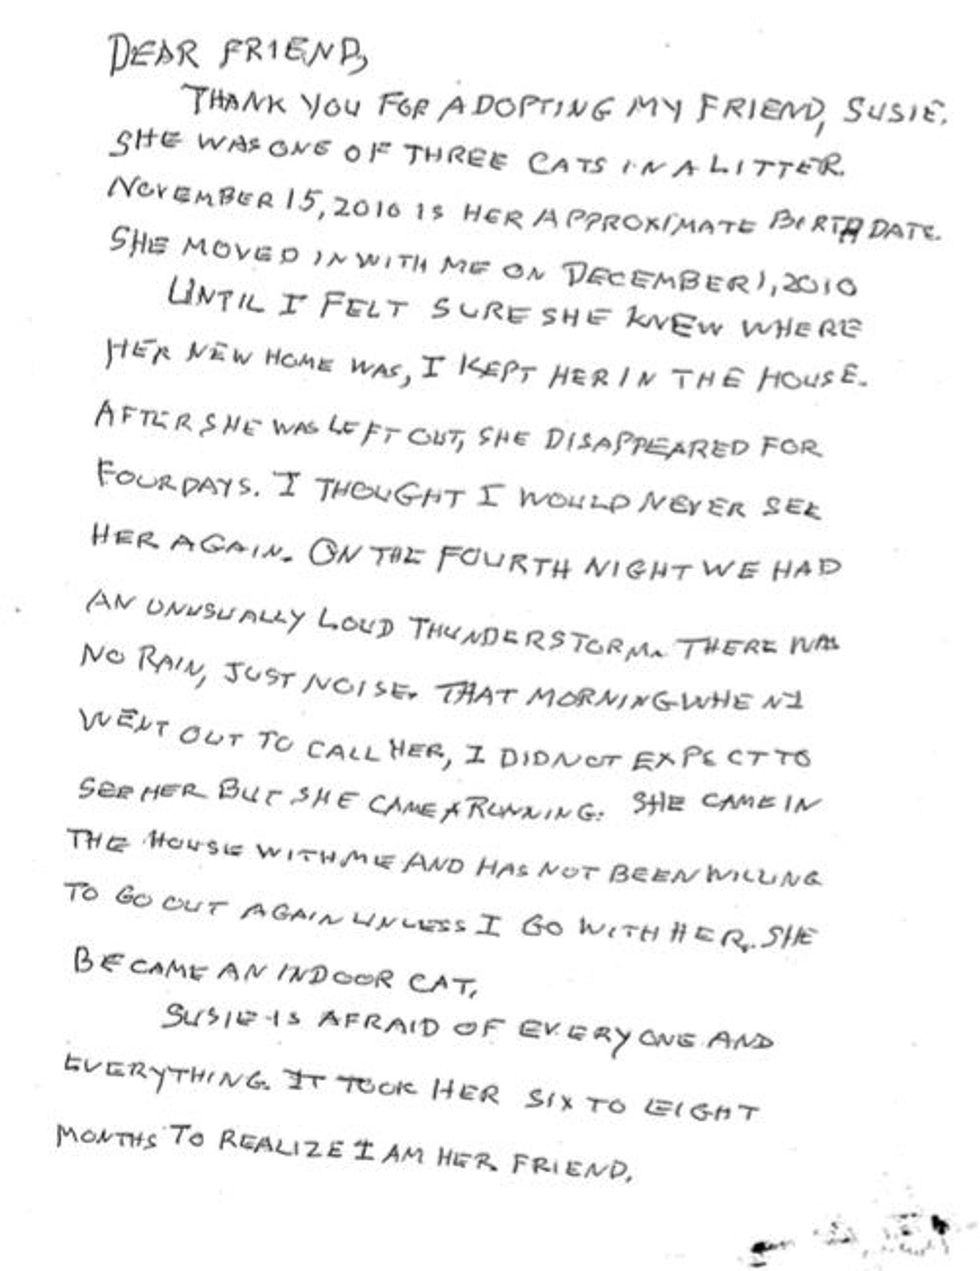 DEAR FRIEND,
THANK YOU FOR ADOPTING MY FRIEND, SUSIE.
SHE WAS ONE OF THREE CATS IN A LITTER.
NOVEMBER 15, 2010 IS HER APPROXIMATE BIRTH DATE.
SHE MOVED IN WITH ME ON DECEMBER 1, 2010
UNTIL I FELT SURE SHE KNEW WHERE
HER NEW HOME WAS, I KEPT HER IN THE HOUSE.
AFTER SHE WAS LEFT OUT, SHE DISAPPEARED FOR
FOUR DAYS. I THOUGHT I WOULD NEVER SEE
HER AGAIN. ON THE FOURTH NIGHT WE HAD
AN UNUSUALLY LOUD THUNDERSTORM. THERE WAS
NO RAIN, JUST NOISE. THAT MORNING WHEN I
WENT OUT TO CALL HER, I DID NOT EXPECT TO
SEE HER BUT SHE CAME A RUNNING. SHE CAME IN
THE HOUSE WITH ME AND HAS NOT BEEN WILLING
TO GO OUT AGAIN UNLESS I GO WITH HER. SHE
BECAME AN INDOOR CAT.
SUSIE IS AFRAID OF EVERYONE AND
EVERYTHING. IT TOOK HER SIX TO EIGHT
MONTHS TO REALIZE I AM HER FRIEND.